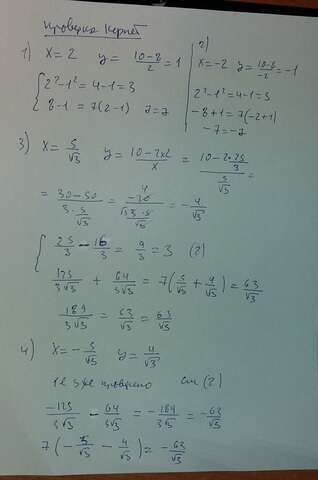 Проверка корней
1) x = 2 y = (10-8)/2 = 1
{ 2² - 1² = 4 - 1 = 3
8 - 1 = 7(2-1) 7 = 7
2)
x = -2 y = (10-8)/(-2) = -1
2² - 1² = 4 - 1 = 3
-8 + 1 = 7(-2+1)
-7 = -7
3) x = 5/√3 y = (10-2x²)/x = (10 - 2·25/3)/(5/√3) =
= (30-50)/(3·5/√3) = -20/(√3√3·5/√3) = -4/√3
{ 25/3 - 16/3 = 9/3 = 3 (2)
125/(3√3) + 64/(3√3) = 7(5/√3 + 4/√3) = 63/√3
189/(3√3) = 63/√3 = 63/√3
4) x = -5/√3 y = 4/√3
уже проверено см (2)
-125/(3√3) - 64/(3√3) = -189/(3√3) = -63/√3
7(-5/√3 - 4/√3) = -63/√3